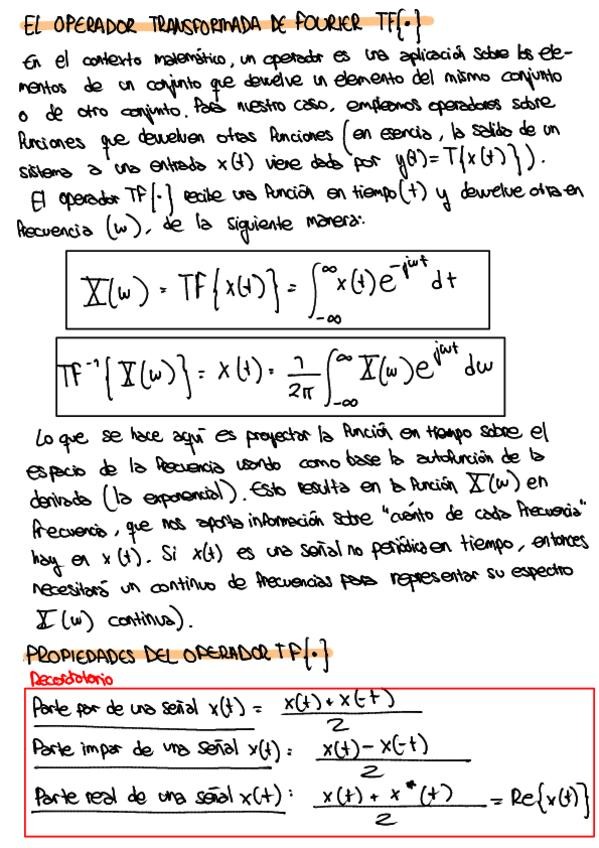 EL OPERADOR TRANSFORMADA DE FOURIER TF{·}
En el contexto matemático, un operador es una aplicación sobre los ele-
mentos de un conjunto que devuelve un elemento del mismo conjunto
o de otro conjunto. Para nuestro caso, empleamos operadores sobre
funciones que devuelven otras funciones (en esencia, la salida de un
sistema a una entrada x(t) viene dada por y(t)=T{x(t)}).
El operador TF{·} recibe una función en tiempo(t) y devuelve otra en
frecuencia (w), de la siguiente manera:
X(w) = TF{x(t)} = ∫_{-∞}^{∞} x(t)e^{-jwt} dt
TF⁻¹{X(w)} = x(t) = 1/2π ∫_{-∞}^{∞} X(w)e^{jwt} dw
Lo que se hace aquí es proyectar la función en tiempo sobre el
espacio de la frecuencia usando como base la autofunción de la
derivada (la exponencial). Esto resulta en la función X(w) en
frecuencia, que nos aporta información sobre "cuánto de cada frecuencia"
hay en x(t). Si x(t) es una señal no periódica en tiempo, entonces
necesitará un continuo de frecuencias para representar su espectro
X(w) continua).
PROPIEDADES DEL OPERADOR TF{·}
Recordatorio
Parte par de una señal x(t) = x(t)+x(-t)/2
Parte impar de una señal x(t): x(t)-x(-t)/2
Parte real de una señal x(t): x(t)+x*(t)/2 = Re{x(t)}